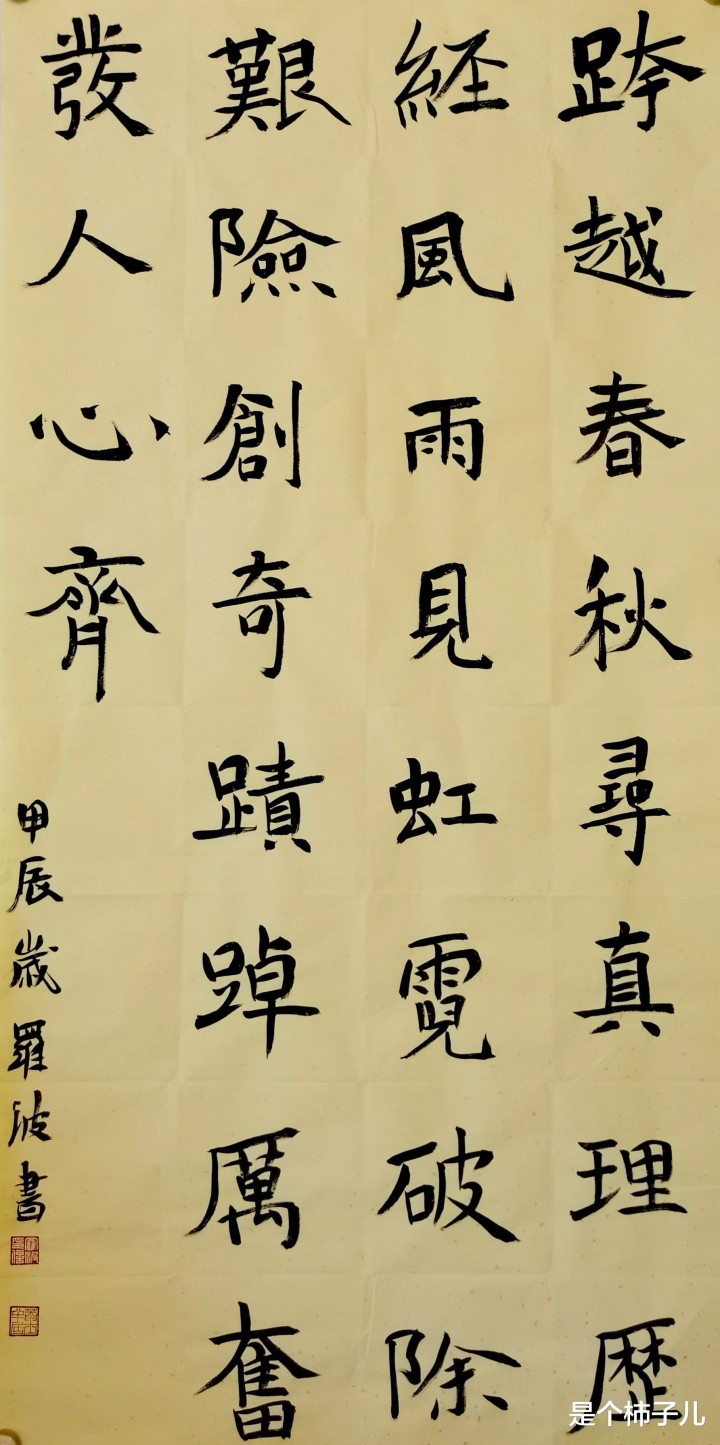 跨越春秋尋真理歷
經風雨見虹霓破除
艱險創奇蹟踔厲奮
發人心齊
甲辰歲羅波書
是个柿子儿